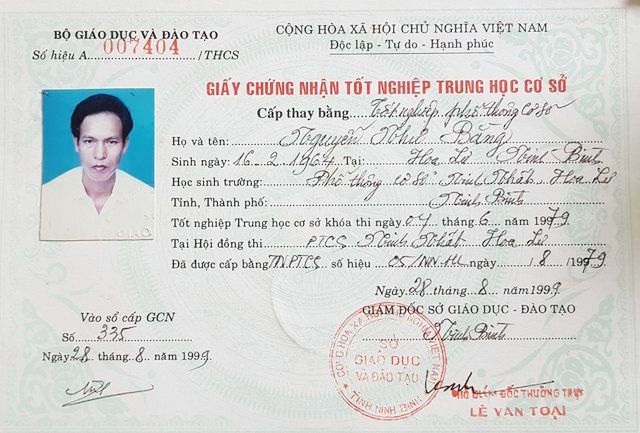 BỘ GIÁO DỤC VÀ ĐÀO TẠO
Số hiệu A 007404 /THCS
CỘNG HÒA XÃ HỘI CHỦ NGHĨA VIỆT NAM
Độc lập - Tự do - Hạnh phúc
GIẤY CHỨNG NHẬN TỐT NGHIỆP TRUNG HỌC CƠ SỞ
Cấp thay bằng Tốt nghiệp phổ thông cơ sở
Họ và tên: Nguyễn Như Băng
Sinh ngày: 16-2-1964 Tại: Hoa Lư Ninh Bình
Học sinh trường: Phổ thông cơ sở Ninh Nhất, Hoa Lư
Tỉnh, Thành phố: Ninh Bình
Tốt nghiệp Trung học cơ sở khóa thi ngày 04 tháng 6 năm 1979
Tại Hội đồng thi PTCS Ninh Nhất Hoa Lư
Đã được cấp bằng TNPTCS số hiệu 05/NN-HL ngày 1 8 / 1979
Ngày 28 tháng 8 năm 1999
GIÁM ĐỐC SỞ GIÁO DỤC - ĐÀO TẠO
Ninh Bình
Vào sổ cấp GCN
Số 335
Ngày 28 tháng 8 năm 1999
CỘNG HÒA XÃ HỘI CHỦ NGHĨA VIỆT NAM
SỞ
GIÁO DỤC
VÀ ĐÀO TẠO
TỈNH NINH BÌNH
PHÓ GIÁM ĐỐC THƯỜNG TRỰC
LÊ VĂN TOẠI